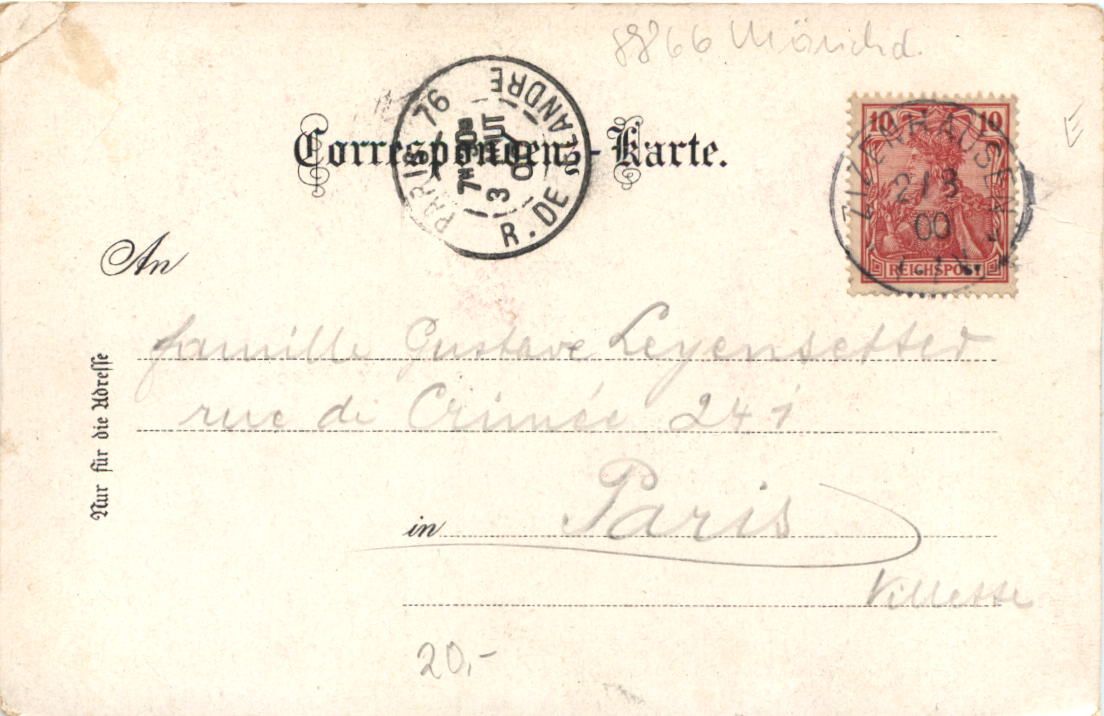 8866
Correspondenz-Karte.
PARIS 76
7M
3 AOUT
00
R. DE FLANDRE
10 10
REICHSPOST
ZIZENHAUSEN
2/8
00
An
famille Gustave Leyensetter
rue de Crimée 241
in Paris
Villette
Nur für die Adresse
20,-
E